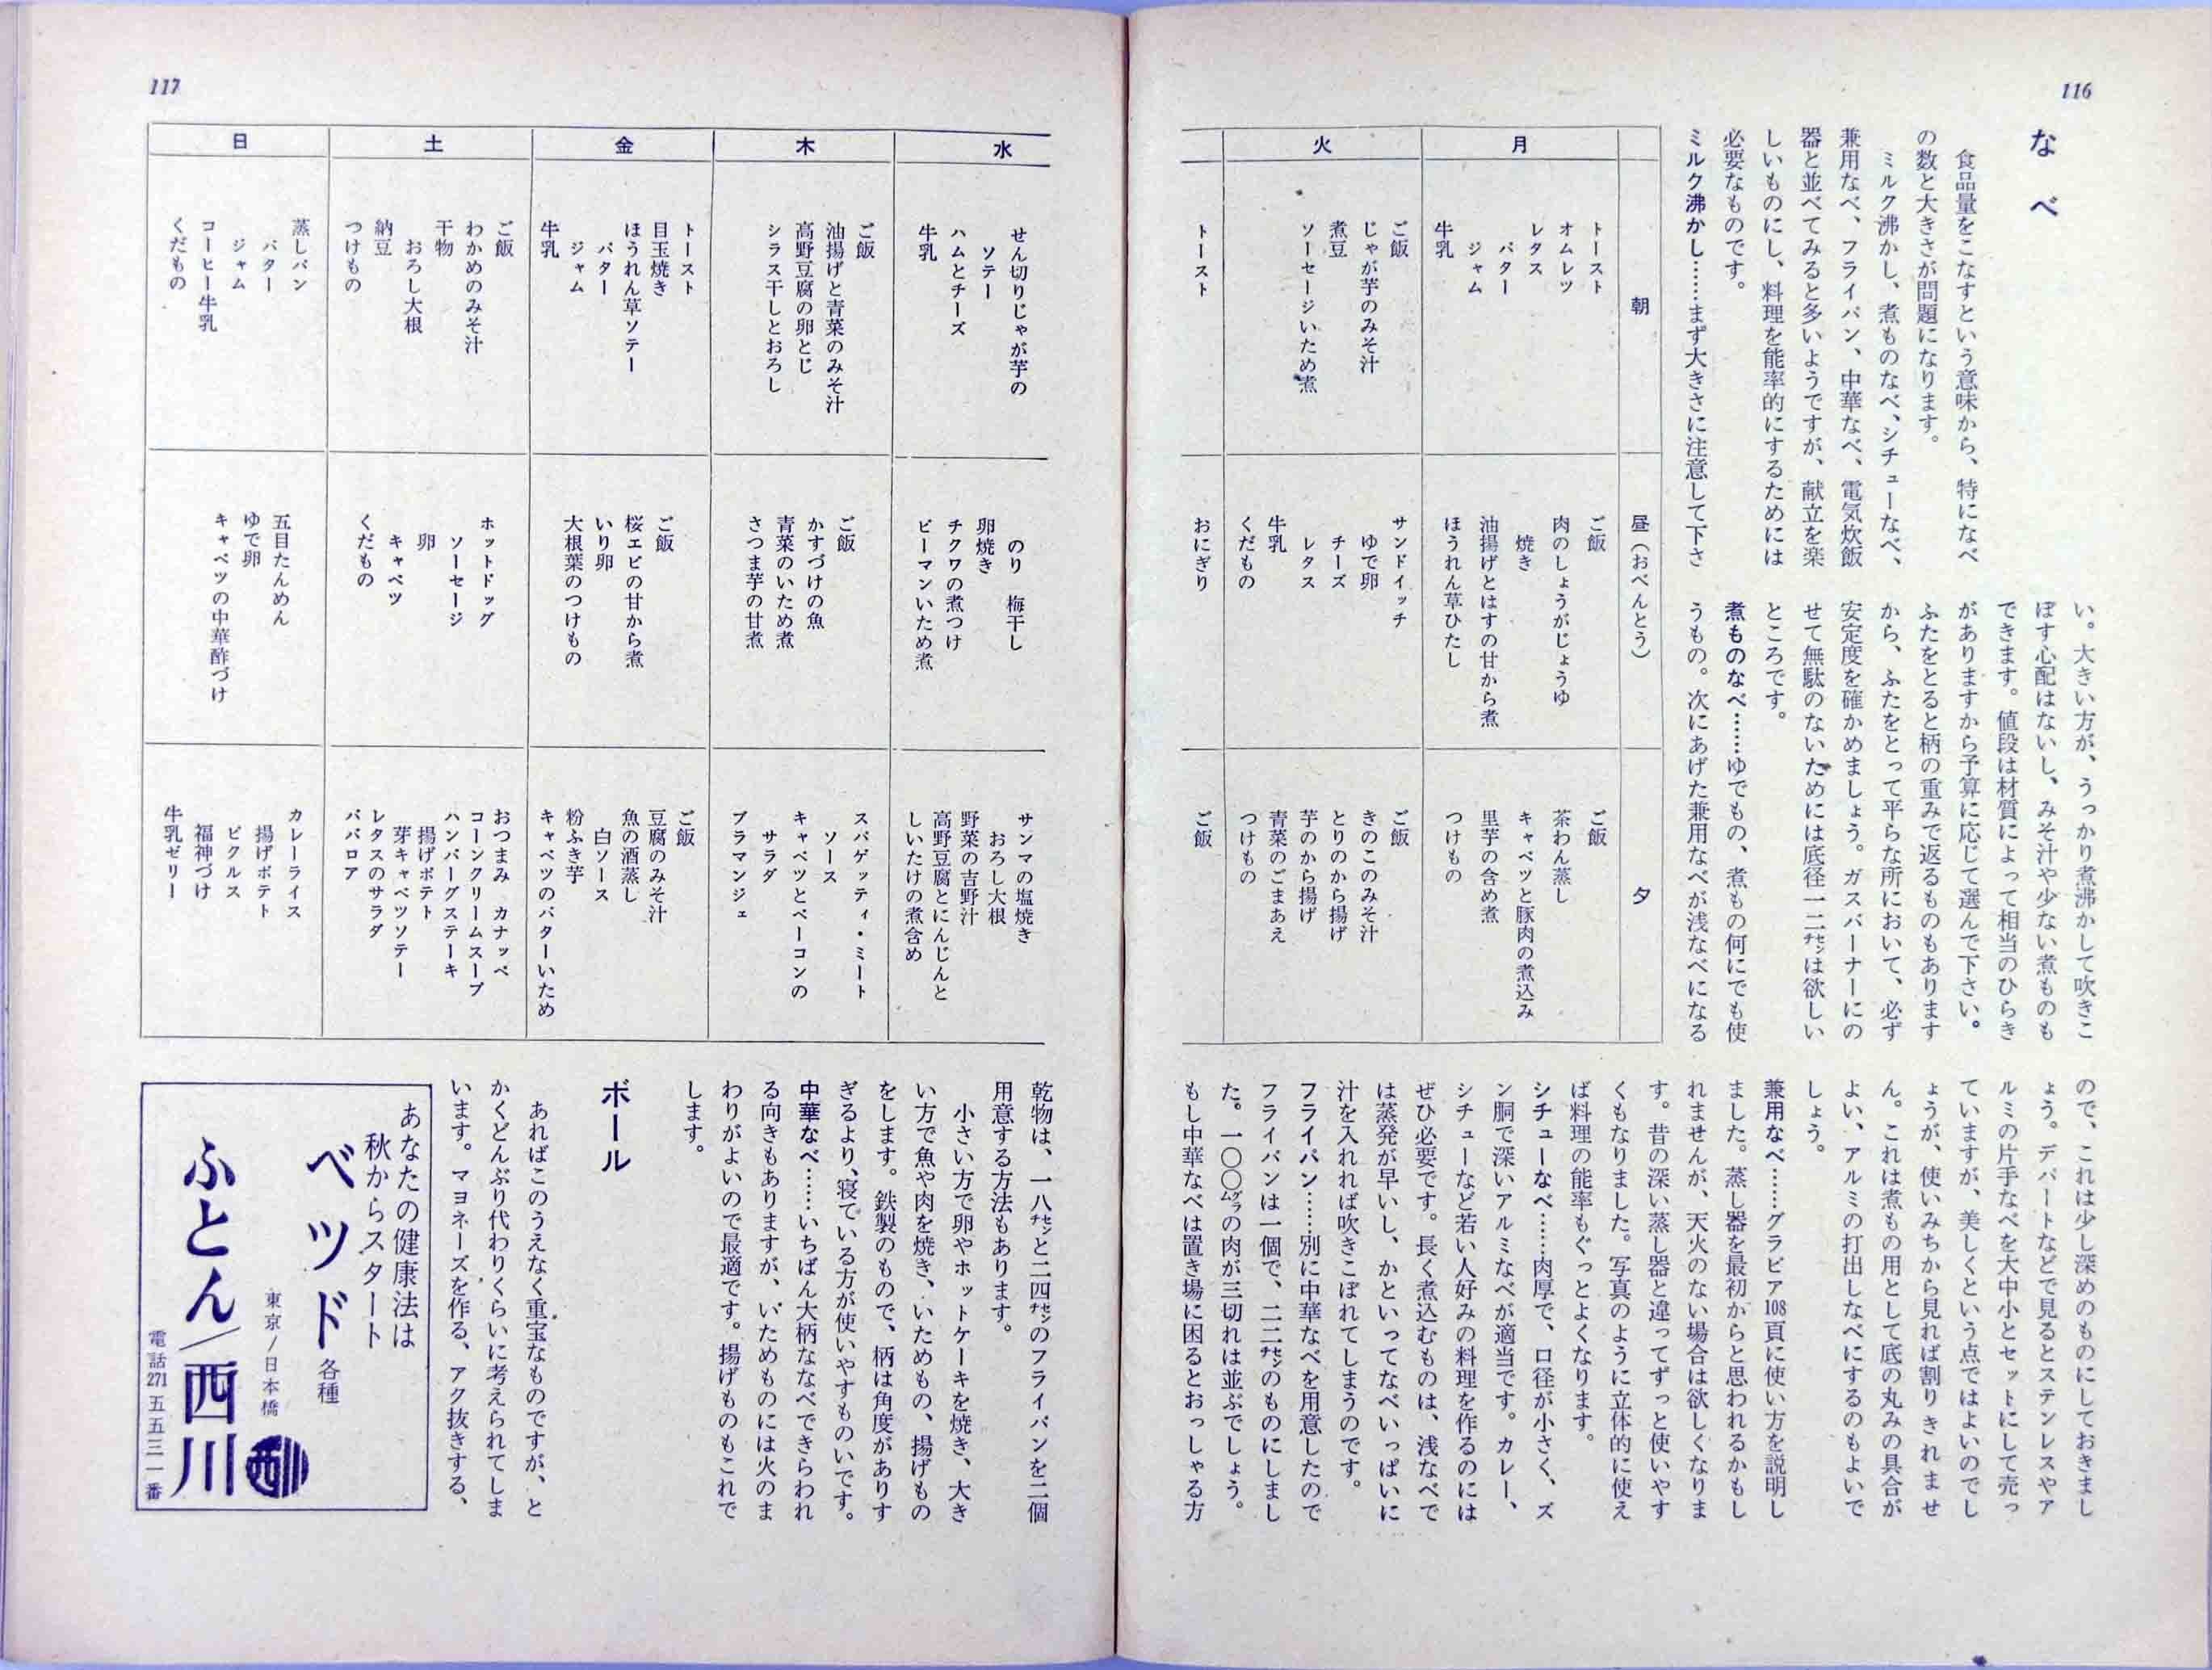 116
なべ
食品量をこなすという意味から、特になべ
の数と大きさが問題になります。
ミルク沸かし、煮ものなべ、シチューなべ、
兼用なべ、フライパン、中華なべ、電気炊飯
器と並べてみると多いようですが、献立を楽
しいものにし、料理を能率的にするためには
必要なものです。
ミルク沸かし……まず大きさに注意して下さ
い。大きい方が、うっかり煮沸かして吹きこ
ぼす心配はないし、みそ汁や少ない煮ものも
できます。値段は材質によって相当のひらき
がありますから予算に応じて選んで下さい。
ふたをとると柄の重みで返るものもあります
から、ふたをとって平らな所において、必ず
安定度を確かめましょう。ガスバーナーにの
せて無駄のないためには底径一二㌢は欲しい
ところです。
煮ものなべ……ゆでもの、煮もの何にでも使
うもの。次にあげた兼用なべが浅なべになる
ので、これは少し深めのものにしておきまし
ょう。デパートなどで見るとステンレスやア
ルミの片手なべを大中小とセットにして売っ
ていますが、美しくという点ではよいのでし
ょうが、使いみちから見れば割りきれませ
ん。これは煮もの用として底の丸みの具合が
よい、アルミの打出しなべにするのもよいで
しょう。
兼用なべ……グラビア108頁に使い方を説明し
ました。蒸し器を最初からと思われるかもし
れませんが、天火のない場合は欲しくなりま
す。昔の深い蒸し器と違ってずっと使いやす
くもなりました。写真のように立体的に使え
ば料理の能率もぐっとよくなります。
シチューなべ……肉厚で、口径が小さく、ズ
ン胴で深いアルミなべが適当です。カレー、
シチューなど若い人好みの料理を作るのには
ぜひ必要です。長く煮込むものは、浅なべで
は蒸発が早いし、かといってなべいっぱいに
汁を入れれば吹きこぼれてしまうのです。
フライパン……別に中華なべを用意したので
フライパンは一個で、二二㌢のものにしまし
た。一〇〇㌘の肉が三切れは並ぶでしょう。
もし中華なべは置き場に困るとおっしゃる方
朝
昼（おべんとう）
夕
月
トースト
オムレツ
レタス
バター
ジャム
牛乳
ご飯
肉のしょうがじょうゆ
焼き
油揚げとはすの甘から煮
ほうれん草ひたし
ご飯
茶わん蒸し
キャベツと豚肉の煮込み
里芋の含め煮
つけもの
火
ご飯
じゃが芋のみそ汁
煮豆
ソーセージいため煮
サンドイッチ
ゆで卵
チーズ
レタス
牛乳
くだもの
ご飯
きのこのみそ汁
とりのから揚げ
芋のから揚げ
青菜のごまあえ
つけもの
トースト
おにぎり
ご飯
117
水
せん切りじゃが芋の
ソテー
ハムとチーズ
牛乳
のり　梅干し
卵焼き
チクワの煮つけ
ピーマンいため煮
サンマの塩焼き
おろし大根
野菜の吉野汁
高野豆腐とにんじんと
しいたけの煮含め
木
ご飯
油揚げと青菜のみそ汁
高野豆腐の卵とじ
シラス干しとおろし
ご飯
かすづけの魚
青菜のいため煮
さつま芋の甘煮
スパゲッティ・ミート
ソース
キャベツとベーコンの
サラダ
ブラマンジェ
金
トースト
目玉焼き
ほうれん草ソテー
バター
ジャム
牛乳
ご飯
桜エビの甘から煮
いり卵
大根葉のつけもの
ご飯
豆腐のみそ汁
魚の酒蒸し
白ソース
粉ふき芋
キャベツのバターいため
土
ご飯
わかめのみそ汁
干物
おろし大根
納豆
つけもの
ホットドッグ
ソーセージ
卵
キャベツ
くだもの
おつまみ　カナッペ
コーンクリームスープ
ハンバーグステーキ
揚げポテト
芽キャベツソテー
レタスのサラダ
ババロア
日
蒸しパン
バター
ジャム
コーヒー牛乳
くだもの
五目たんめん
ゆで卵
キャベツの中華酢づけ
カレーライス
揚げポテト
ピクルス
福神づけ
牛乳ゼリー
乾物は、一八㌢と二四㌢のフライパンを二個
用意する方法もあります。
小さい方で卵やホットケーキを焼き、大き
い方で魚や肉を焼き、いためもの、揚げもの
をします。鉄製のもので、柄は角度がありす
ぎるより、寝ている方が使いやすものいです。
中華なべ……いちばん大柄ななべできらわれ
る向きもありますが、いためものには火のま
わりがよいので最適です。揚げものもこれで
します。
ボール
あればこのうえなく重宝なものですが、と
かくどんぶり代わりくらいに考えられてしま
います。マヨネーズを作る、アク抜きする、
あなたの健康法は
秋からスタート
ベツド各種
東京/日本橋
ふとん/西川
西川
電話271五五三一番